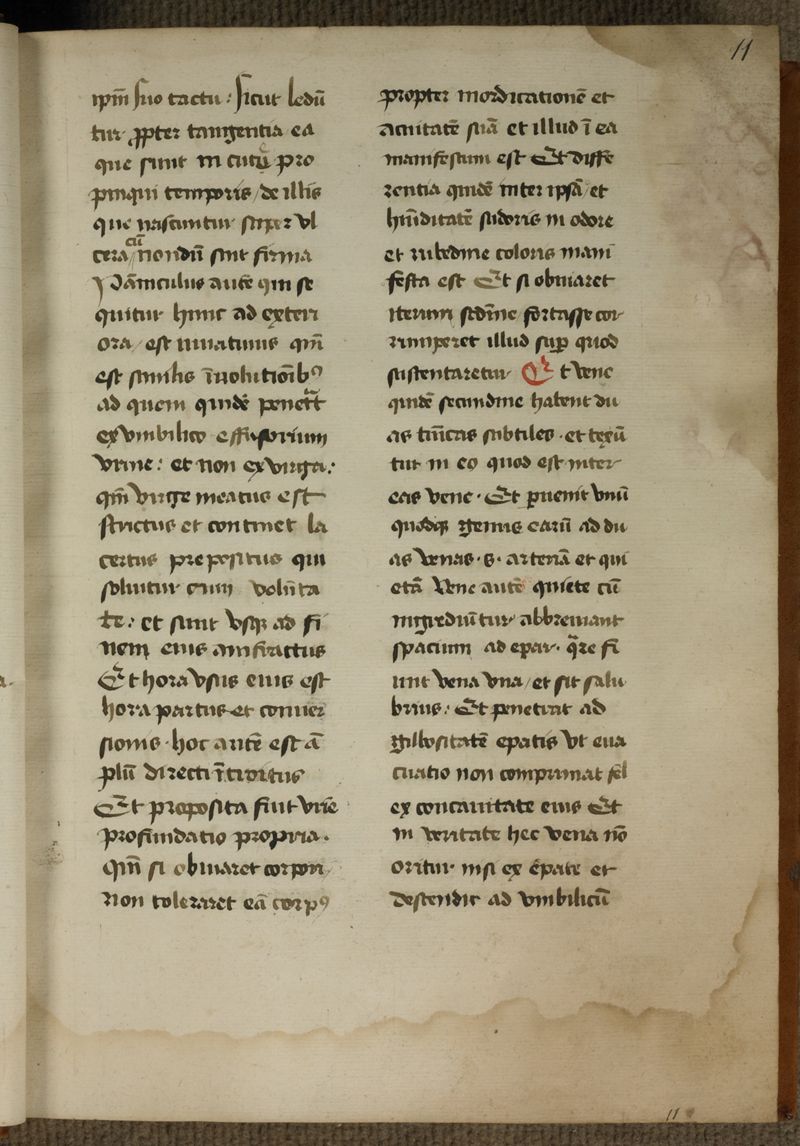 11
ipm̄ suo tactu: sicut ledū
tur ꝓpter tangentia ea
que sunt in cutū pro
pinqui temporis / de illis
que nascuntur super vl
cera / cū nondū sunt firma
Pāniculus autē qui se
quitur hunc ad exteri
ora / est minatimus qm̄
est similis īuolutioībꝰ
ad quem quidē penetāt
ex vmbilico effusorium
vrine: et non ex virga:
qm̄ virge meatus est
strictus et continet la
certus prepositus qui
soluitur cum volūta
te: et sunt vsqꝫ ad fi
nem eius anfractus
Et hora vsus eius est
hora partus et conuer
sionis · hoc autē est ā
plū directi ītroitus
Et proposita fuit vrīe
profundatio propria ·
qm̄ si obuiaret corpori
non toleraret eā corpꝰ
propter mordicationē et
acuitatē suā et illud ī ea
manifestum est Et diffe
rentia quidē inter ipsā / et
hūiditatē sudoris in odore
et rubedine coloris mani
festa est Et si obuiaret
iterum secūdine fortasse cor
rumperet illud suꝑ quod
sustentaretur Et vene
quidē secundine habent du
as tunicas subtiles · et texū
tur in eo quod est inter
eas vene · Et ꝑuenit vnū
quodqꝫ genus earū ad du
as venas · s · arteriā et qui
etā Vene autē quiete cū
ingrediūtur abbreuiant
spacium ad epar · quare fi
unt vena vna / et fit salu
brius: Et penetrat ad
gilbositatē epatis vt eua
cuatio non comprimat fel
ex concauitate eius Et
in veritate hec vena nō
oritur nisi ex epate et
descendit ad vmbilicū
11